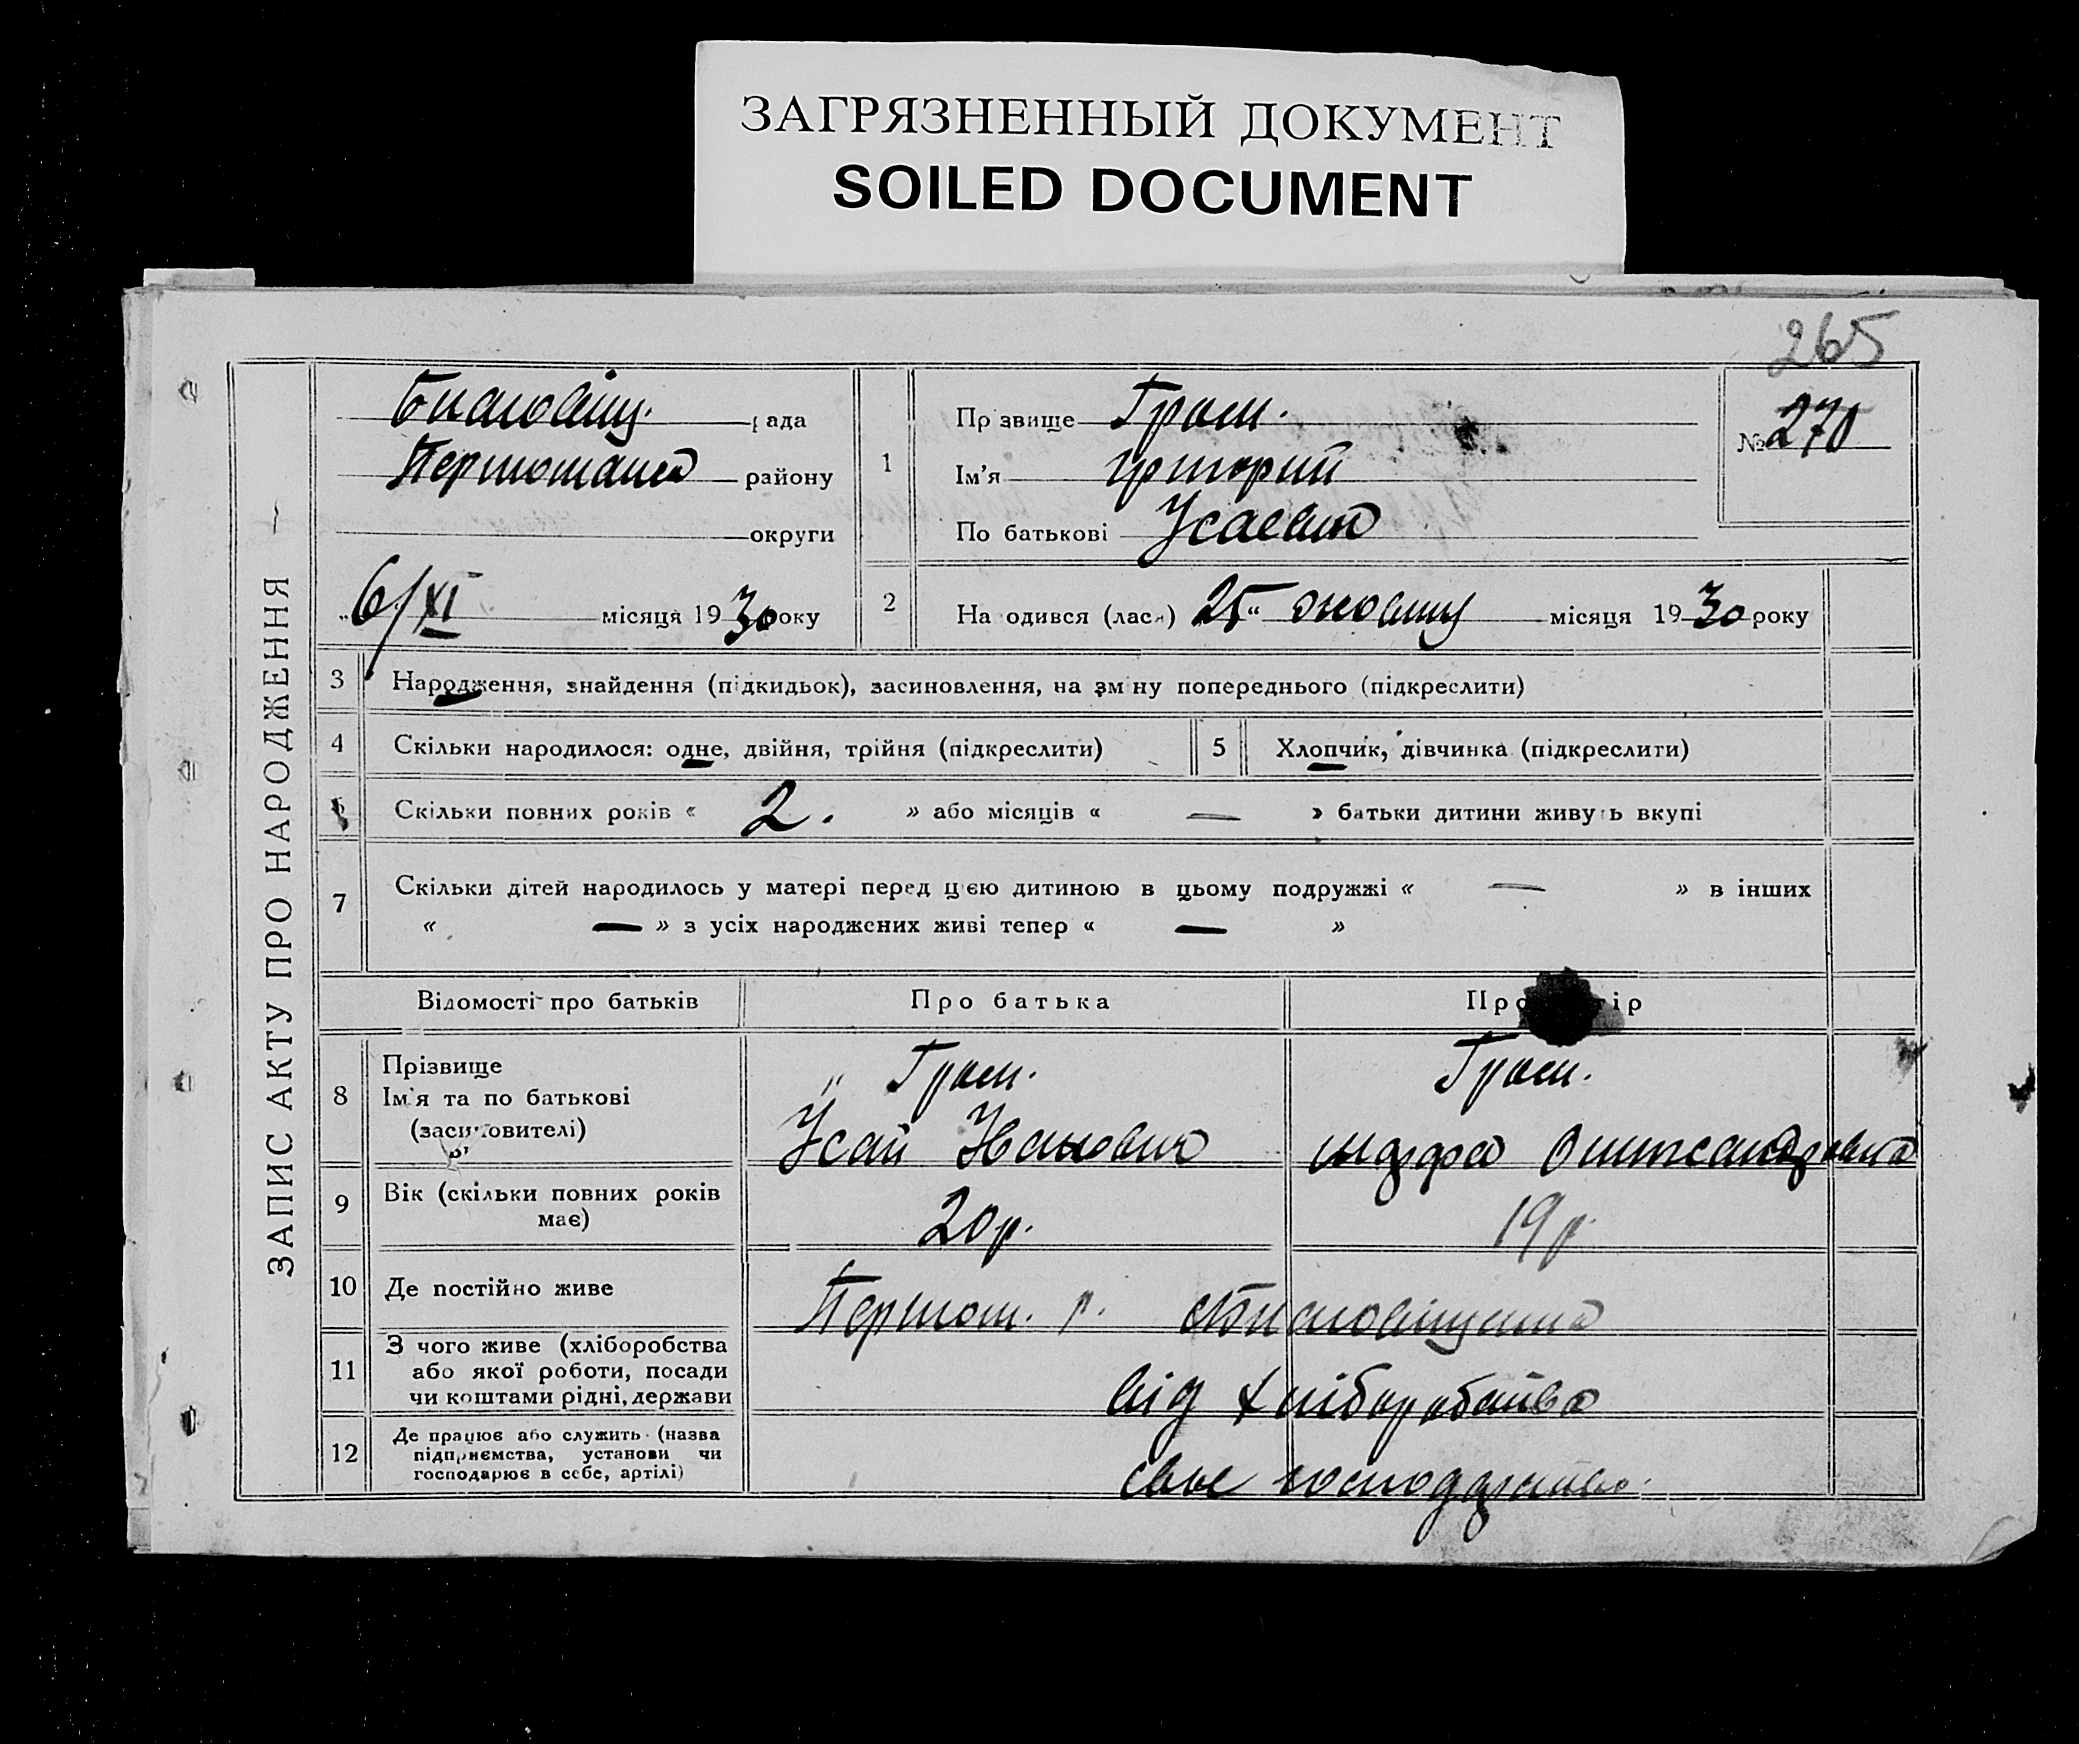 ЗАГРЯЗНЕННЫЙ ДОКУМЕНТ
SOILED DOCUMENT
265
ЗАПИС АКТУ ПРО НАРОДЖЕННЯ
рада
району
округи
6/XI місяця 1930 року
1
Прізвище
Ім'я Григорий
По батькові Усаевич
№ 270
2
Народився (лася) 25 " місяця 1930 року
3 Народження, знайдення (підкидьок), засиновлення, на зміну попереднього (підкреслити)
4 Скільки народилося: одне, двійня, трійня (підкреслити)
5 Хлопчик, дівчинка (підкреслити)
6 Скільки повних років « 2. » або місяців « — » батьки дитини живуть вкупі
7 Скільки дітей народилось у матері перед цією дитиною в цьому подружжі « — » в інших
« — » з усіх народжених живі тепер « — »
Відомості про батьків
Про батька
Про матір
8 Прізвище
Ім'я та по батькові
(засиновителі)
Усай Иванович
9 Вік (скільки повних років
має)
20 р.
19 р.
10 Де постійно живе
11 З чого живе (хліборобства
або якої роботи, посади
чи коштами рідні, держави
від хліборобства
12 Де працює або служить (назва
підприємства, установи чи
господарює в себе, артілі)
свое господарство.